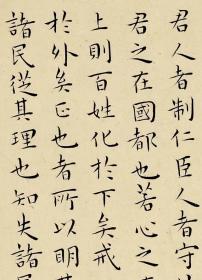 君人者制仁臣人者守
君之在國都也若心之
上則百姓化於下矣戒
於外矣正也者所以明其
諸民從其理也知失諸